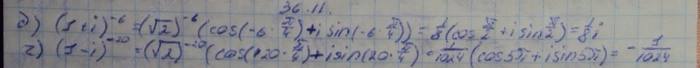 36.11.
д) (1+i)⁻⁶ = (√2)⁻⁶ (cos(-6·π/4) + i sin(-6·π/4)) = 1/8 (cos π/2 + i sin π/2) = 1/8 i
г) (1-i)⁻²⁰ = (√2)⁻²⁰ (cos(20·π/4) + i sin(20·π/4)) = 1/1024 (cos5π + i sin5π) = - 1/1024